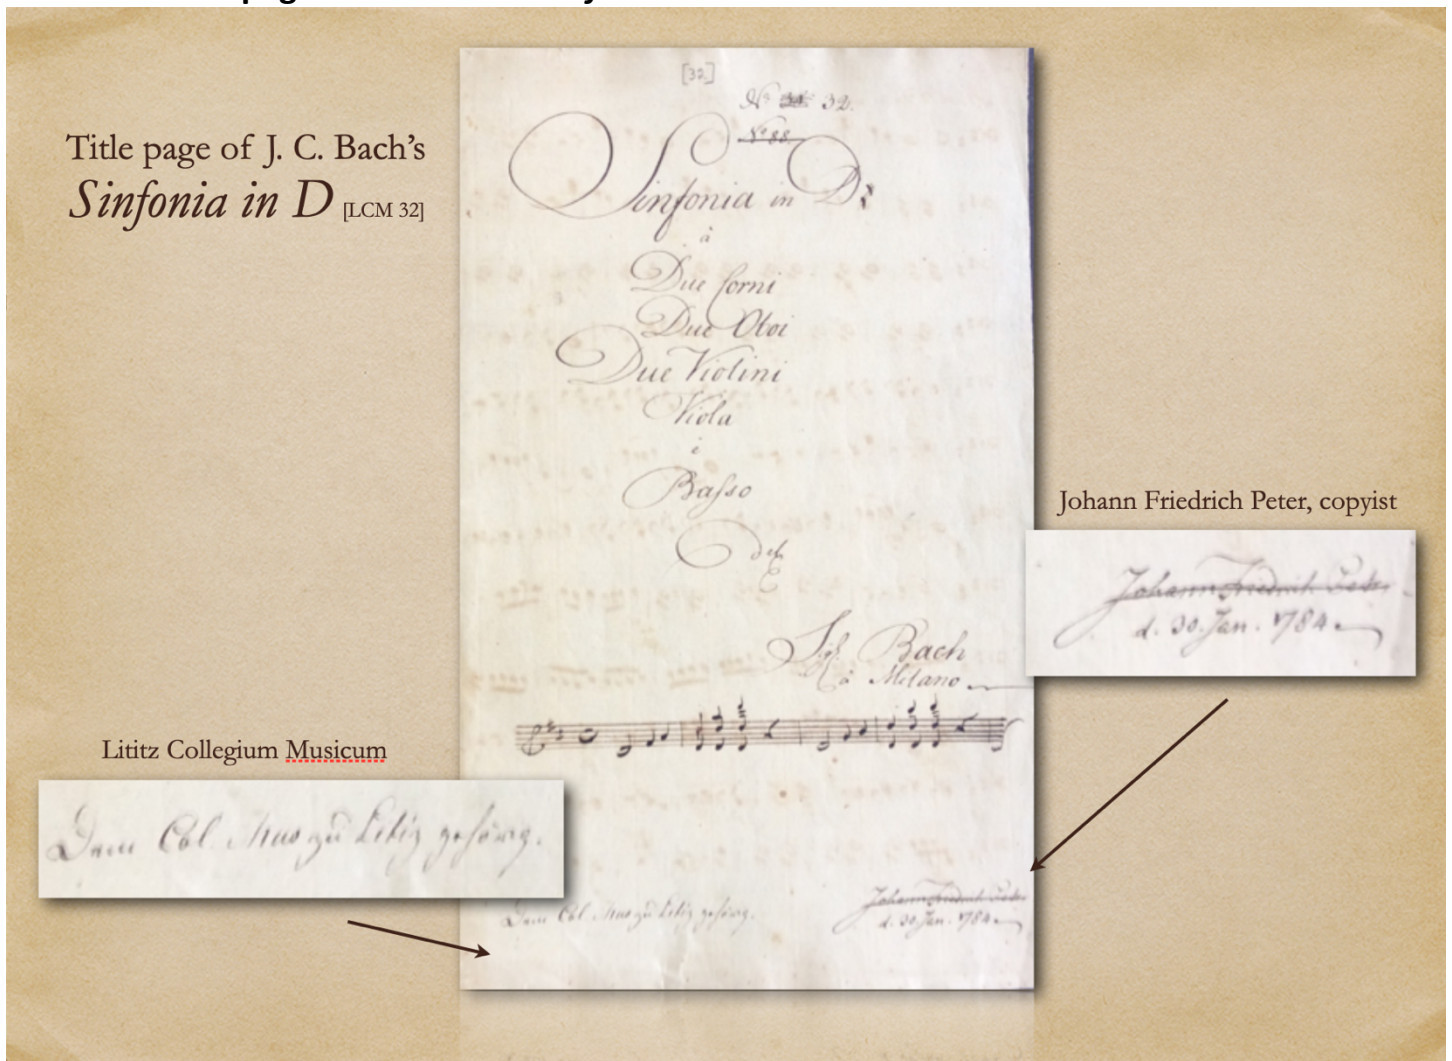 Title page of J. C. Bach's
Sinfonia in D [LCM 32]
[32]
No 32.
No 88
Sinfonia in D
à
Due Corni
Due Oboi
Due Violini
Viola
è
Basso
del
Sigl. Bach
à Milano
Johann Friedrich Peter, copyist
Johann Friedrich Peter
d. 30. Jan. 1784
Lititz Collegium Musicum
Dem Col. Mus zu Litiz gehörig.
Dem Col. Mus zu Litiz gehörig.
Johann Friedrich Peter
d. 30 Jan. 1784